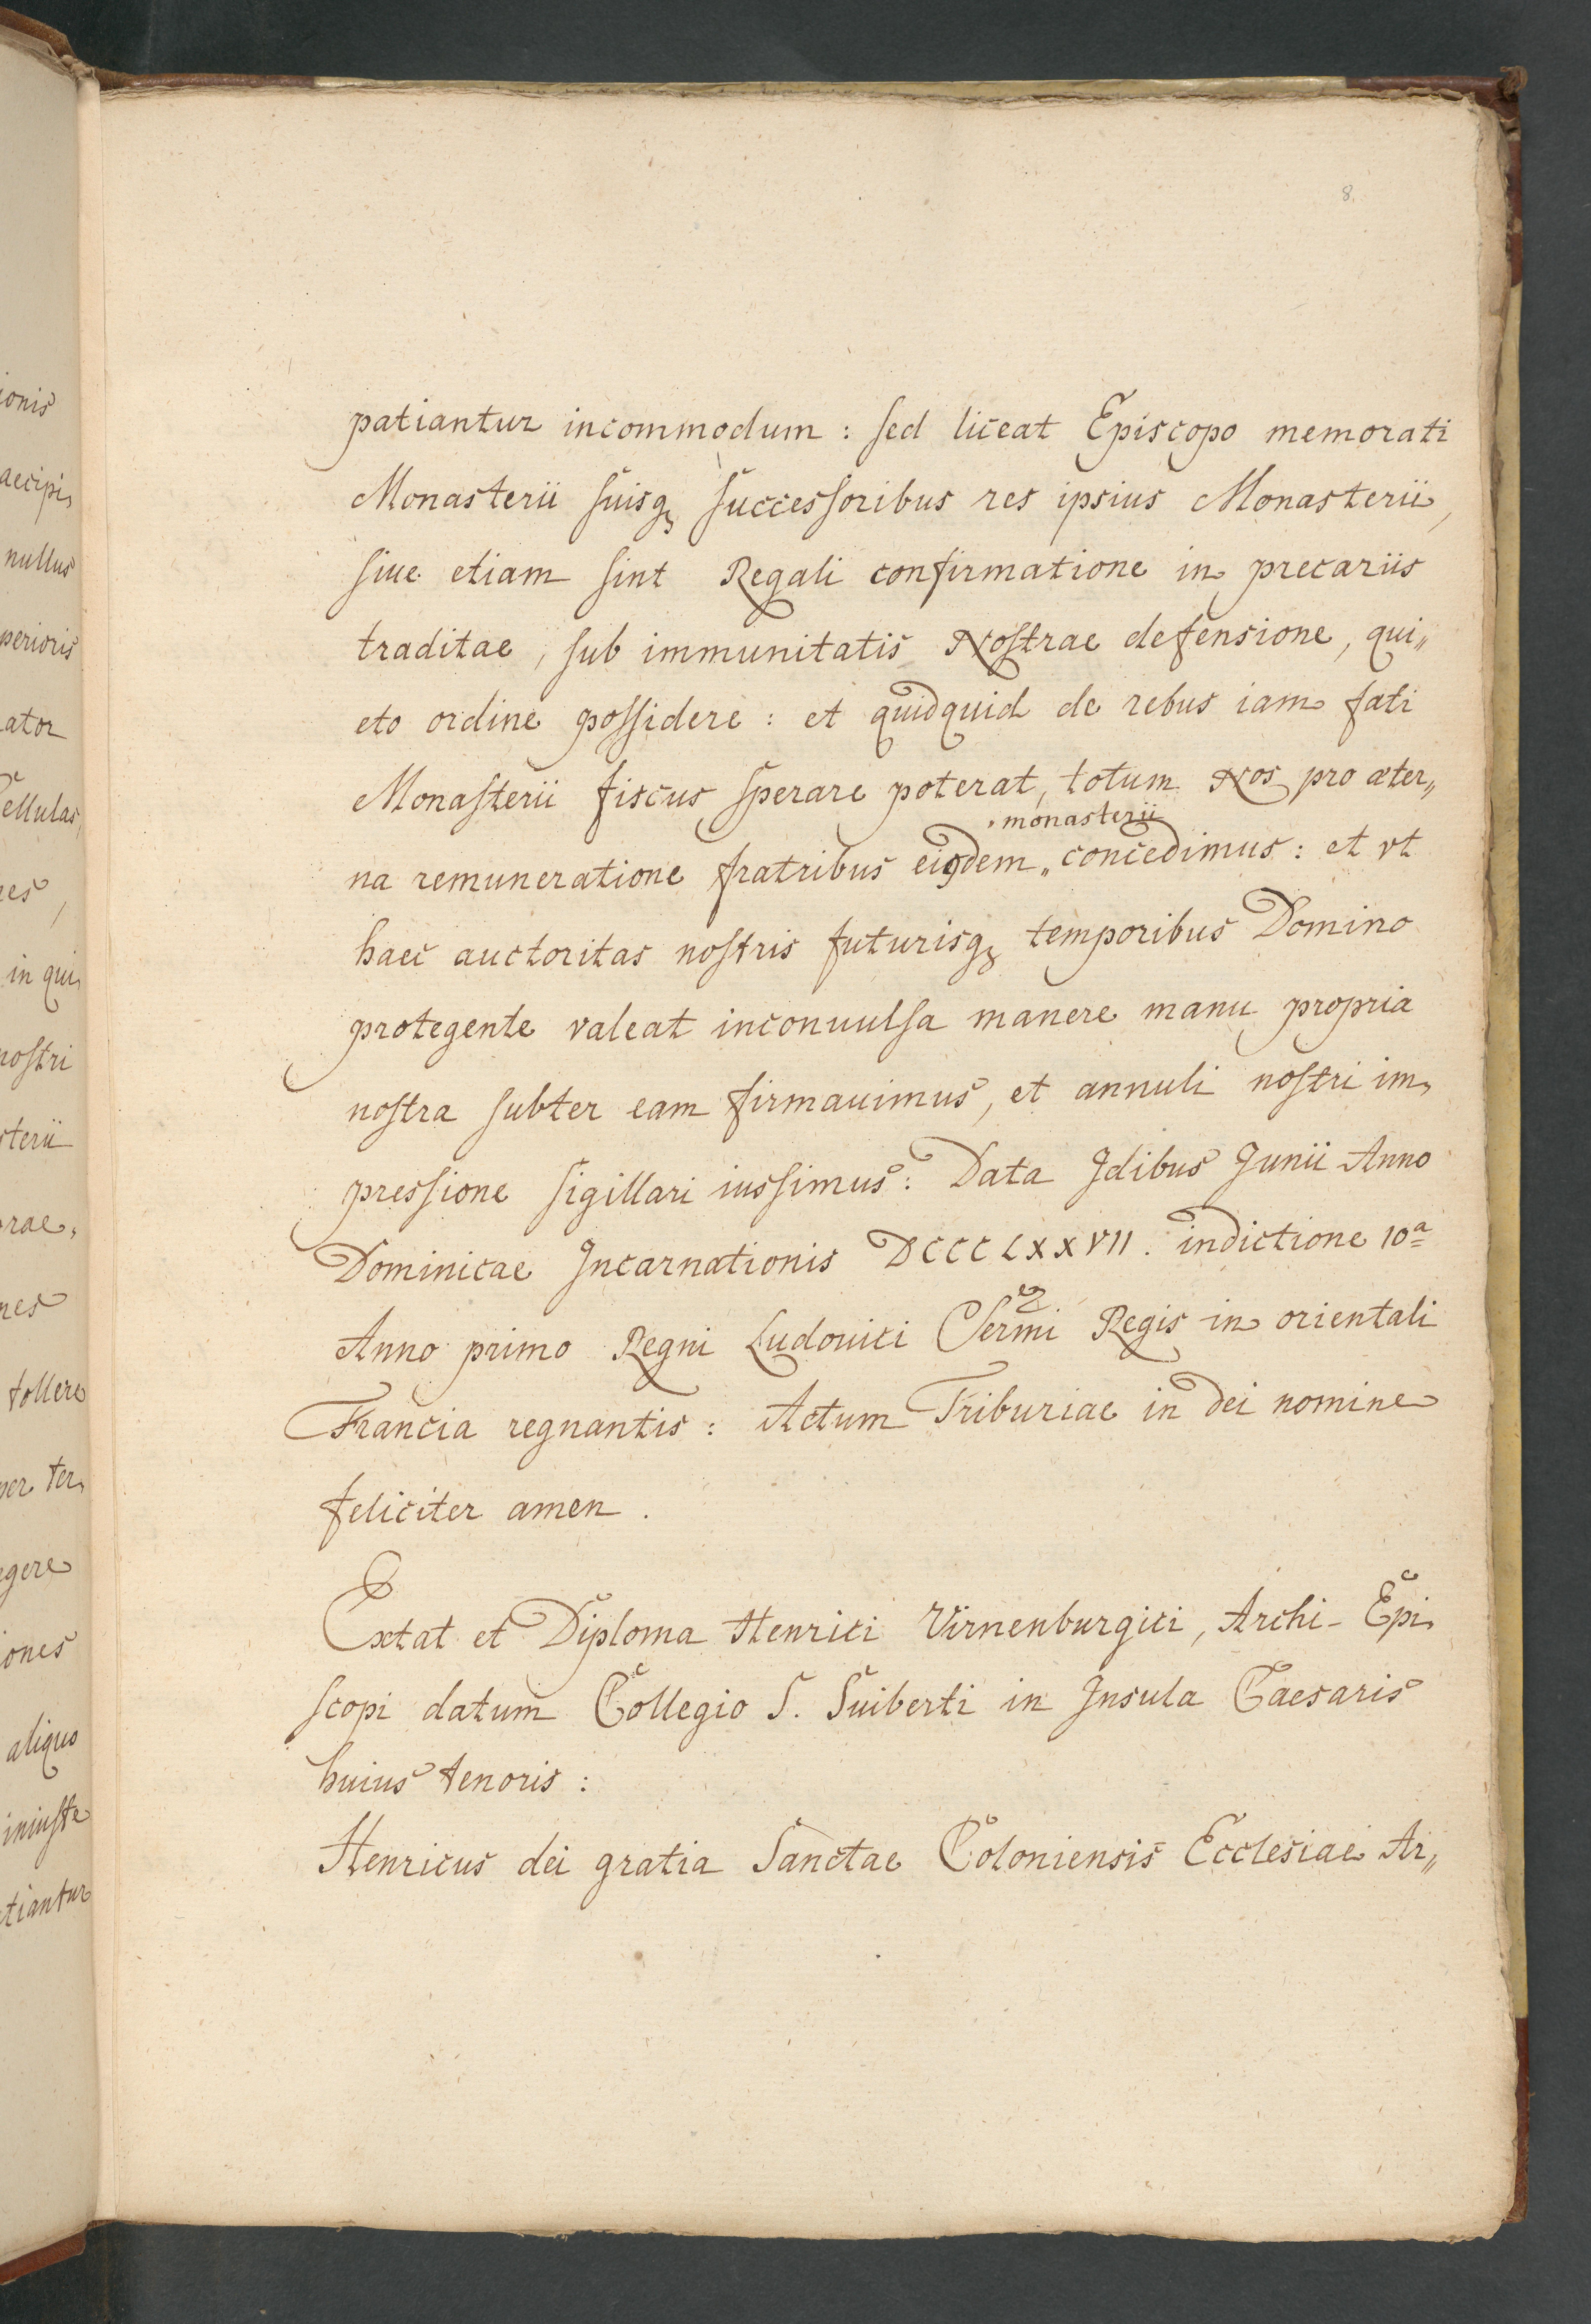 8.
patiantur incommodum : sed liceat Episcopo memorati
Monasterii suisq₃ successoribus res ipsius Monasterii,
siue etiam sint Regali confirmatione in precariis
traditae, sub immunitatis Nostrae defensione, qui„
eto ordine possidere : et quidquid de rebus iam fati
Monasterii fiscus sperare poterat, totum Nos pro æter„
monasterii
na remuneratione fratribus eiꝯdem „ concedimus : et vt
haec auctoritas nostris futurisq₃ temporibus Domino
protegente valeat inconuulsa manere manu propria
nostra subter eam firmauimus, et annuli nostri im„
pressione sigillari iussimus : Data Idibus Junii Anno
Dominicae Incarnationis DCCCLXXVII. indictione 10ª
Anno primo Regni Ludouici Sermi Regis in orientali
Francia regnantis : Actum Triburiae in dei nomine
feliciter amen .
Extat et Diploma Henrici Virnenburgici, Archi-Epi„
scopi datum Collegio S. Suiberti in Insula Caesaris
huius tenoris :
Henricus dei gratia Sanctae Coloniensis Ecclesiae Ar„